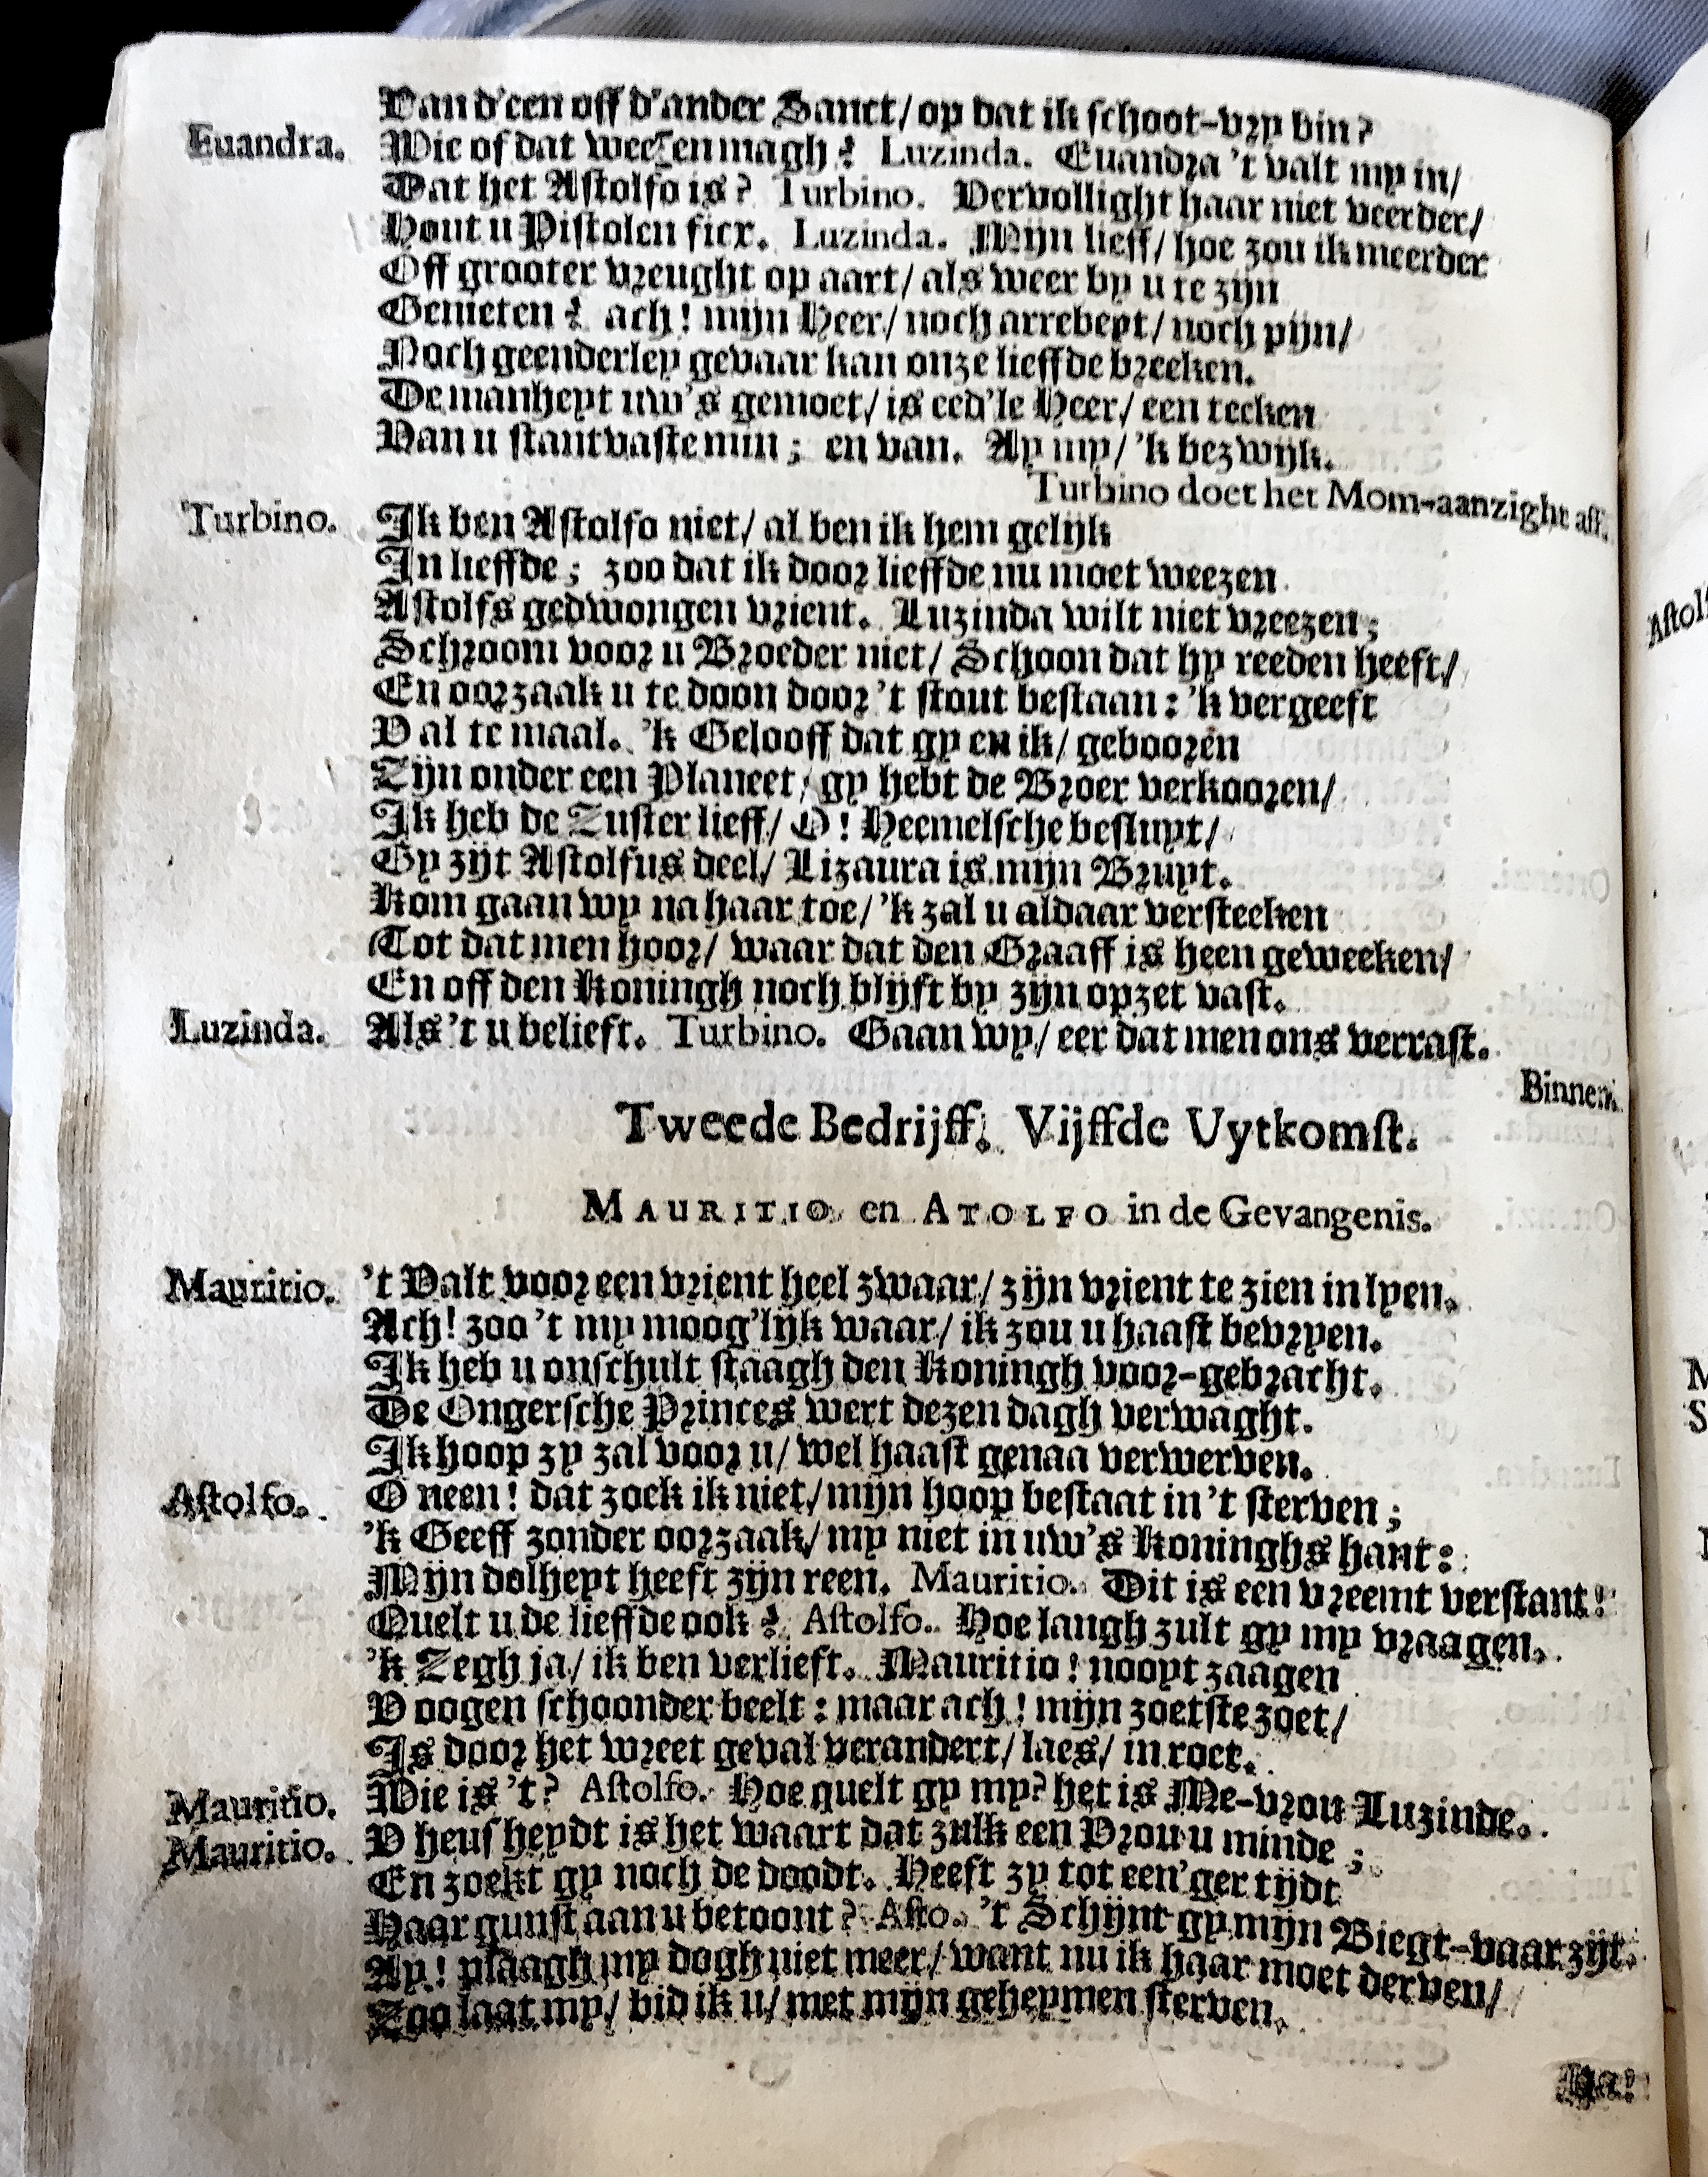 Van d'een off d'ander Sanct/ op dat ik schoot-vry bin?
Euandra. Wie of dat weezen magh? Luzinda. Euandra 't valt my in/
Dat het Astolfo is? Turbino. Vervollight haar niet veerder/
Hout u Pistolen fier. Luzinda. Mijn lieff/ hoe zou ik meerder
Off grooter vreught op aart/ als weer by u te zijn
Genieten? ach! mijn Heer/ noch arrebeyt/ noch pijn/
Noch geenderley gevaar kan onze lieffde breeken.
De manheyt uw's gemoet/ is eed'le Heer/ een teeken
Van u stantvaste min; en van. Ay my/ 'k bezwijk.
Turbino doet het Mom-aanzight aff.
Turbino. Ik ben Astolfo niet/ al ben ik hem gelijk
In lieffde; zoo dat ik door lieffde nu moet weezen
Astolfs gedwongen vrient. Luzinda wilt niet vreezen;
Schroom voor u Broeder niet/ Schoon dat hy reeden heeft/
En oorzaak u te doon door 't stout bestaan: 'k vergeeft
V al te maal. 'k Gelooff dat gy en ik/ gebooren
Zijn onder een Planeet/ gy hebt de Broer verkooren/
Ik heb de Zuster lieff/ O! Heemelsche besluyt/
Gy zijt Astolfus deel/ Lizaura is mijn Bruyt.
Kom gaan wy na haar toe/ 'k zal u aldaar versteeken
Tot dat men hoor/ waar dat den Graaff is heen geweeken/
En off den Koningh noch blijft by zijn opzet vast.
Luzinda. Als 't u belieft. Turbino. Gaan wy/ eer dat men ons verrast.
Binnen.
Tweede Bedrijff. Vijffde Uytkomst.
MAURITIO en ATOLFO in de Gevangenis.
Mauritio. 't Valt voor een vrient heel zwaar/ zijn vrient te zien in lyen.
Ach! zoo 't my moog'lijk waar/ ik zou u haast bevryen.
Ik heb u onschult staagh den Koningh voor-gebracht.
De Ongersche Princes wert dezen dagh verwaght.
Ik hoop zy zal voor u/ wel haast genaa verwerven.
Astolfo. O neen! dat zoek ik niet/ mijn hoop bestaat in 't sterven;
'k Geeff zonder oorzaak/ my niet in uw's Koninghs hant:
Mijn dolheyt heeft zijn reen. Mauritio. Dit is een vreemt verstant!
Quelt u de lieffde ook? Astolfo. Hoe langh zult gy my vraagen.
'k Zegh ja/ ik ben verlieft. Mauritio! nooyt zaagen
V oogen schoonder beelt: maar ach! mijn zoetste zoet/
Is door het wreet geval verandert/ laes/ in roet.
Mauritio. Wie is 't? Astolfo. Hoe quelt gy my? het is Me-vrou Luzinde.
Mauritio. V heusheydt is het waart dat zulk een Vrou u minde;
En zoekt gy noch de doodt. Heeft zy tot een'ger tijdt
Haar gunst aan u betoont? Asto. 't Schijnt gy mijn Biegt-vaar zijt.
Ay! plaagh my dogh niet meer/ want nu ik haar moet derven/
Zoo laat my/ bid ik u/ met mijn geheymen sterven.
Ha!
Astol